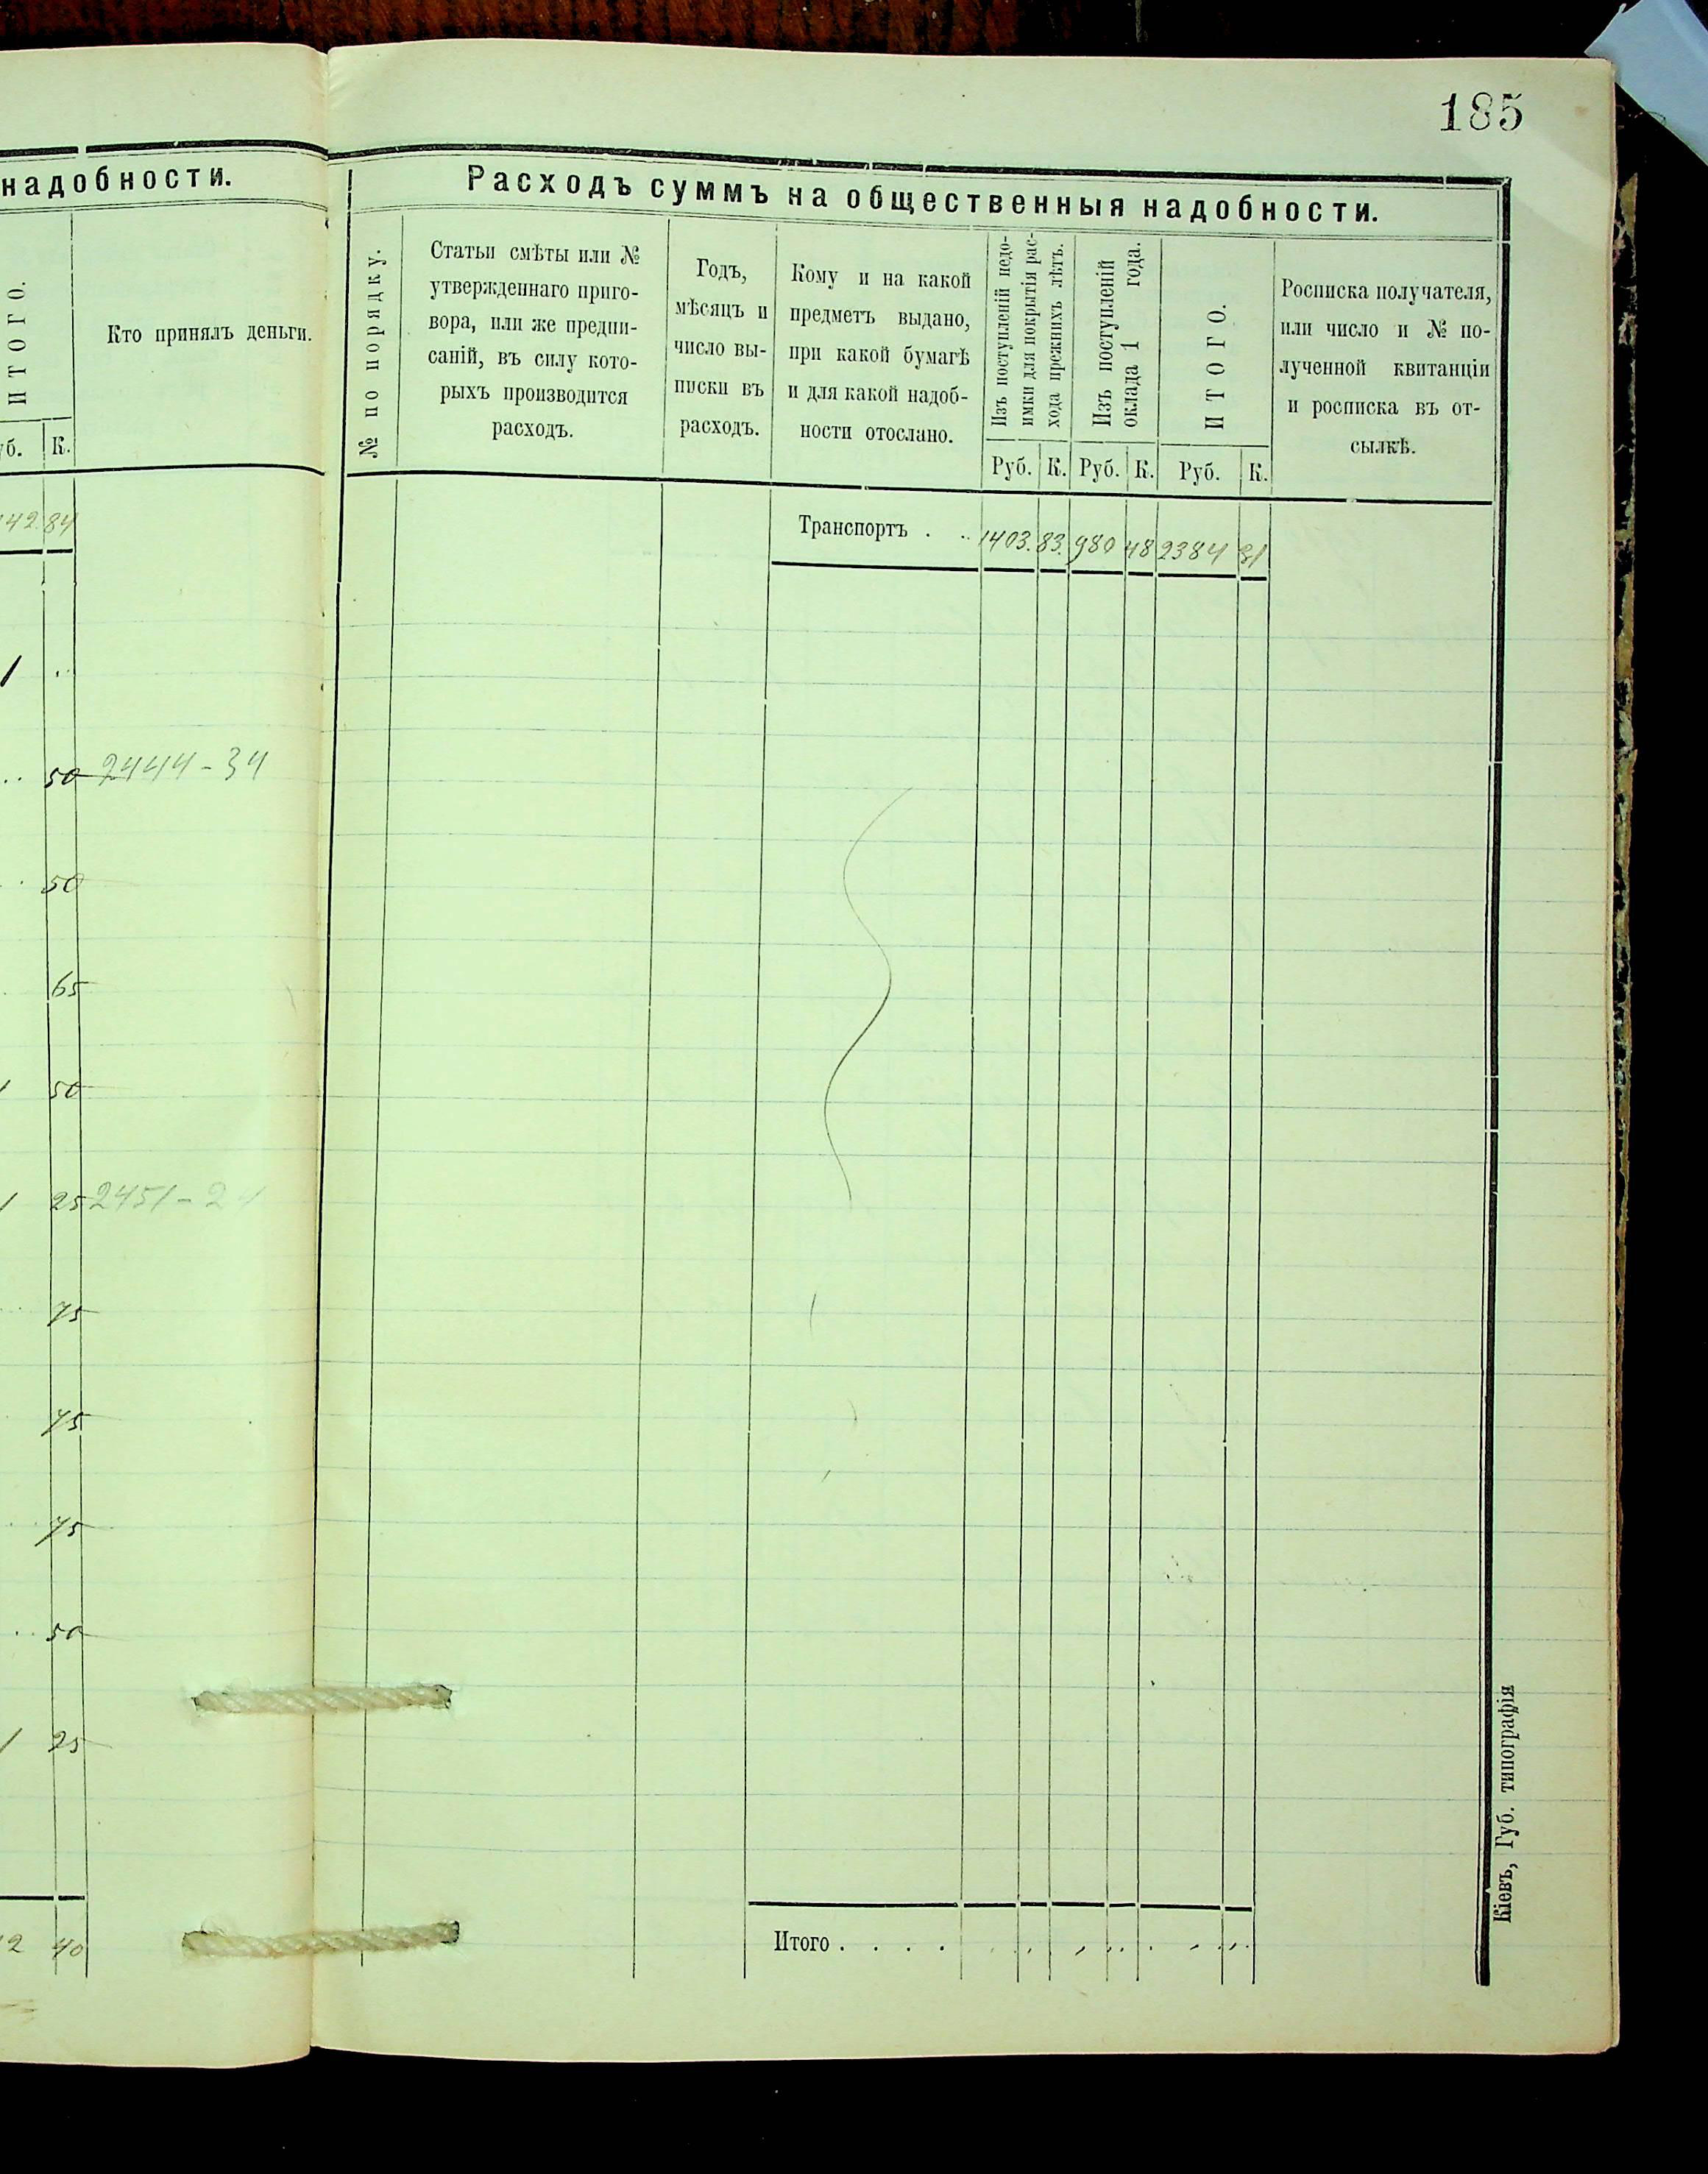 185
надобности.
ИТОГО.
Кто принялъ деньги.
уб. К.
42 84
1
50 2444-34
50
65
1 50
1 25 2451-2
75
75
75
50
1 25
2 40
Расходъ суммъ на общественныя надобности.
№ по порядку.
Статьи смѣты или №
утвержденнаго приго-
вора, или же предпи-
саній, въ силу кото-
рыхъ производится
расходъ.
Годъ,
мѣсяцъ и
число вы-
писки въ
расходъ.
Кому и на какой
предметъ выдано,
при какой бумагѣ
и для какой надоб-
ности отослано.
Изъ поступленій недо-
имки для покрытія рас-
хода прежнихъ лѣтъ.
Изъ поступленій
оклада 1 года.
ИТОГО.
Росписка получателя,
или число и № по-
лученной квитанціи
и росписка въ от-
сылкѣ.
Руб. К. Руб. К. Руб. К.
Транспортъ . . 1403. 83. 980 48 2384 31
Итого . . . .
Кіевъ, Губ. типографія